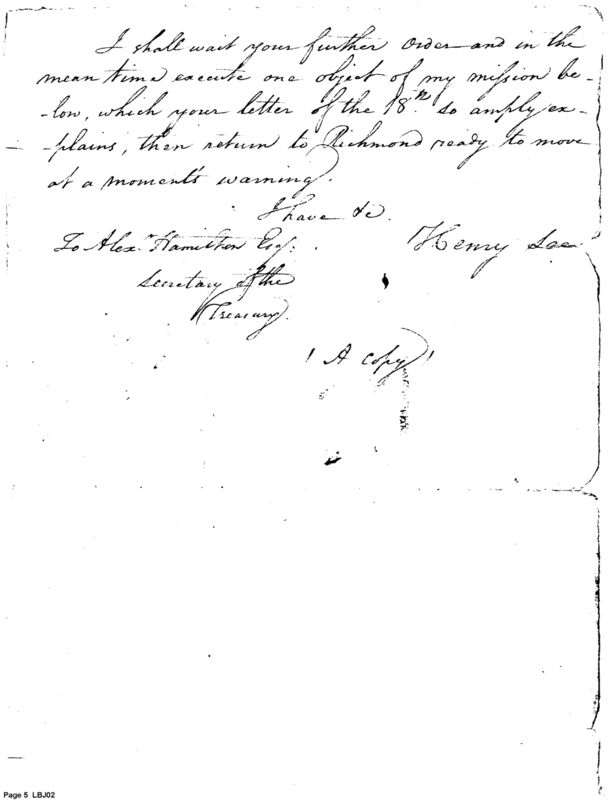 I shall wait your further Order and in the
mean time execute one object of my mission be-
-low, which your letter of the 18th. so amply ex-
-plains, then return to Richmond ready to move
at a moment's warning.
I have &c.
To Alexr. Hamilton Esqr. Henry Lee
Secretary of the
Treasury.
(A copy)
Page 5 LBJ02